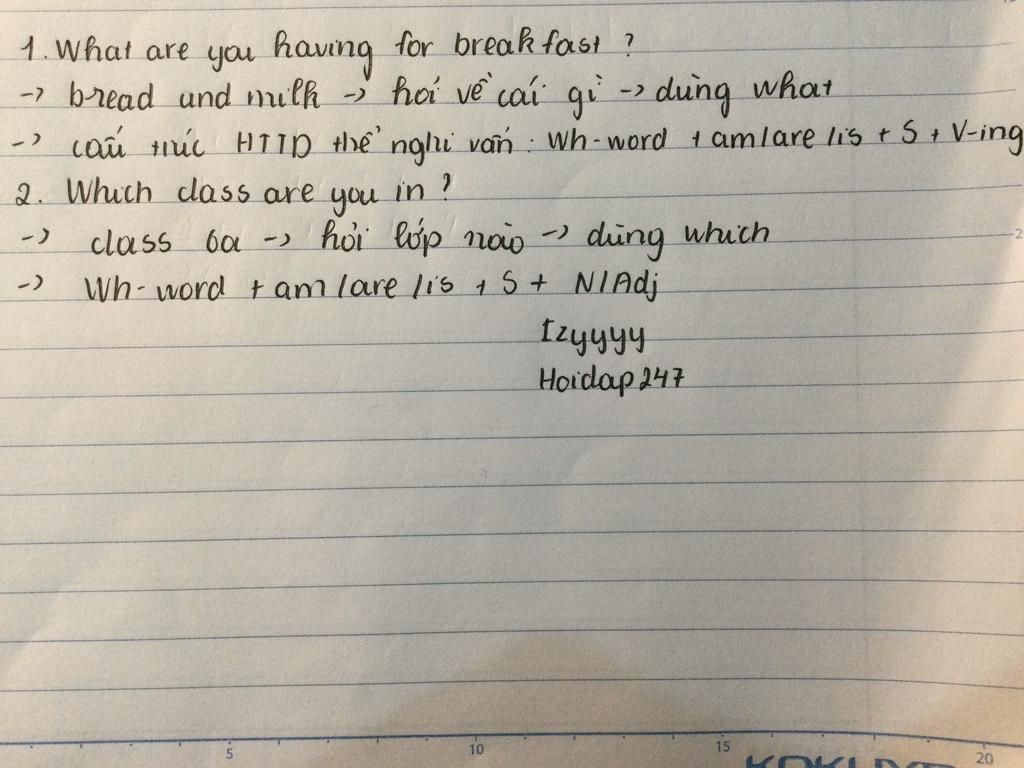 1. What are you having for breakfast ?
-> bread and milk -> hỏi về cái gì -> dùng what
-> cấu trúc HTTD thể nghi vấn : Wh-word + am/are/is + S + V-ing
2. Which class are you in ?
-> class 6a -> hỏi lớp nào -> dùng which
-> Wh-word + am/are/is + S + N/Adj
Izyyyy
Hoidap247
5 10 15 20